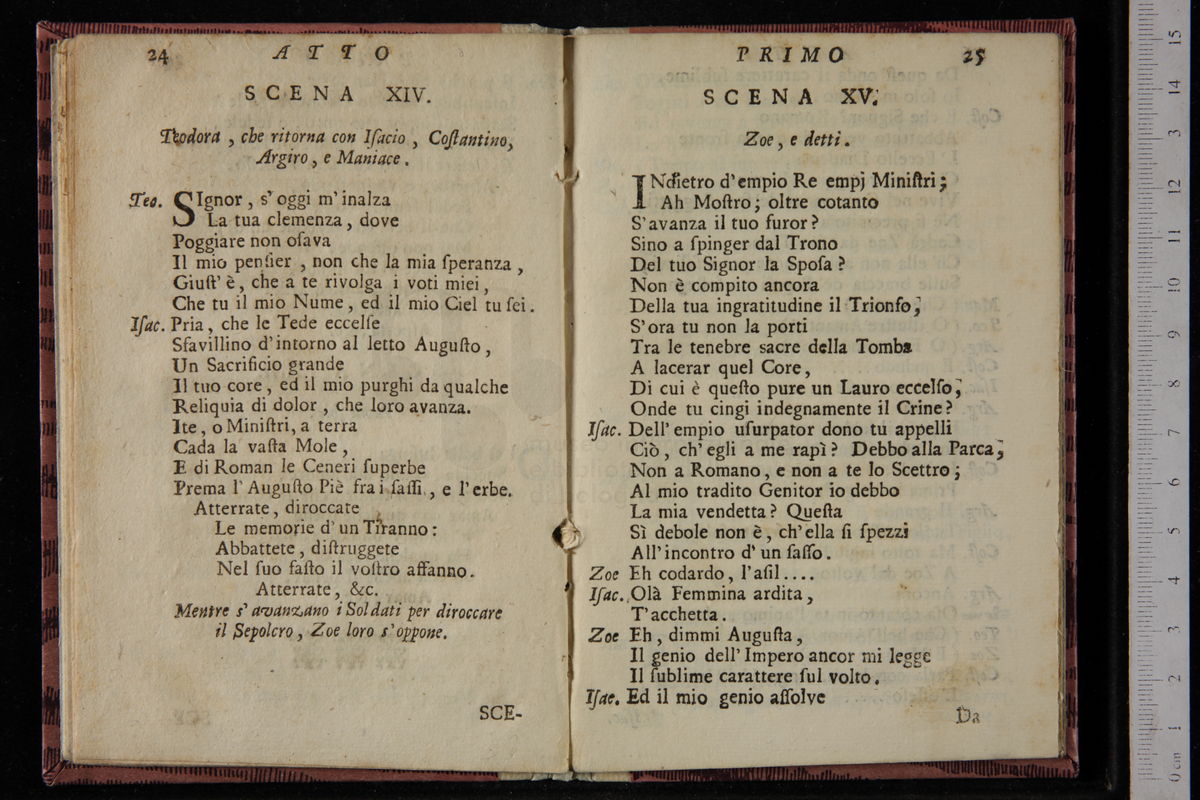 24 ATTO
SCENA XIV.
Teodora , che ritorna con Iſacio , Coſtantino,
Argiro , e Maniace .
Teo. SIgnor , s' oggi m' inalza
La tua clemenza , dove
Poggiare non oſava
Il mio penſier , non che la mia ſperanza ,
Giuſt' è , che a te rivolga i voti miei ,
Che tu il mio Nume , ed il mio Ciel tu ſei .
Iſac. Pria , che le Tede eccelſe
Sfavillino d' intorno al letto Auguſto ,
Un Sacrificio grande
Il tuo core , ed il mio purghi da qualche
Reliquia di dolor , che loro avanza.
Ite , o Miniſtri , a terra
Cada la vaſta Mole ,
E di Roman le Ceneri ſuperbe
Prema l' Auguſto Piè fra i ſaſſi , e l' erbe.
Atterrate , diroccate
Le memorie d' un Tiranno :
Abbattete , diſtruggete
Nel ſuo faſto il voſtro affanno.
Atterrate , &c.
Mentre s' avanzano i Soldati per diroccare
il Sepolcro , Zoe loro s' oppone.
SCE-
PRIMO 25
SCENA XV.
Zoe , e detti .
INdietro d' empio Re empj Miniſtri ;
Ah Moſtro ; oltre cotanto
S' avanza il tuo furor ?
Sino a ſpinger dal Trono
Del tuo Signor la Spoſa ?
Non è compito ancora
Della tua ingratitudine il Trionfo ,
S' ora tu non la porti
Tra le tenebre sacre della Tomba
A lacerar quel Core ,
Di cui è queſto pure un Lauro eccelſo ,
Onde tu cingi indegnamente il Crine ?
Iſac. Dell' empio uſurpator dono tu appelli
Ciò , ch' egli a me rapì ? Debbo alla Parca ,
Non a Romano , e non a te lo Scettro ;
Al mio tradito Genitor io debbo
La mia vendetta ? Queſta
Sì debole non è , ch' ella ſi ſpezzi
All' incontro d' un ſaſſo .
Zoe Eh codardo , l' aſil ....
Iſac. Olà Femmina ardita ,
T' acchetta .
Zoe Eh , dimmi Auguſta ,
Il genio dell' Impero ancor mi legge
Il ſublime carattere ſul volto .
Iſac. Ed il mio genio aſſolve
Da
15
14
13
12
11
10
9
8
7
6
5
4
3
2
1
0 cm